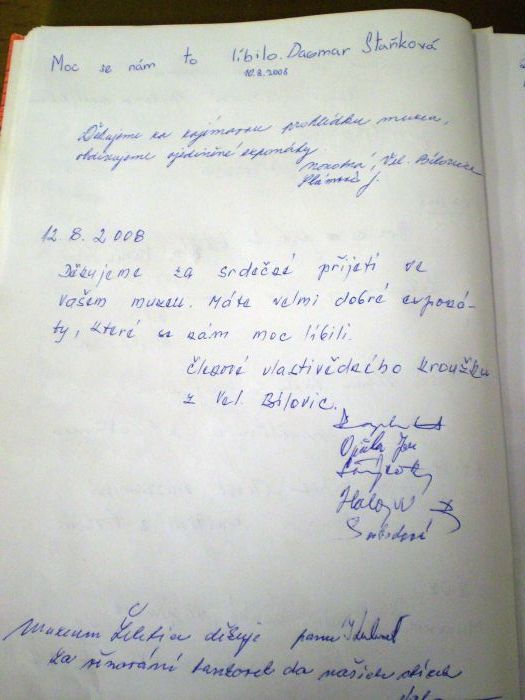 Moc se nám to líbilo. Dagmar Staňková
10.8.2008
Děkujeme za zajímavou prohlídku muzea,
obdivujeme ojedinělé exponáty.
Novotná, Vel. Bílovice
J.
12. 8. 2008
Děkujeme za srdečné přijetí ve
Vašem muzeu. Máte velmi dobré exponá-
ty, které se nám moc líbili.
Členové vlastivědného kroužku
z Vel. Bílovic.
Svobodová
Muzeum děkuje panu
za věnování do našich sbírek